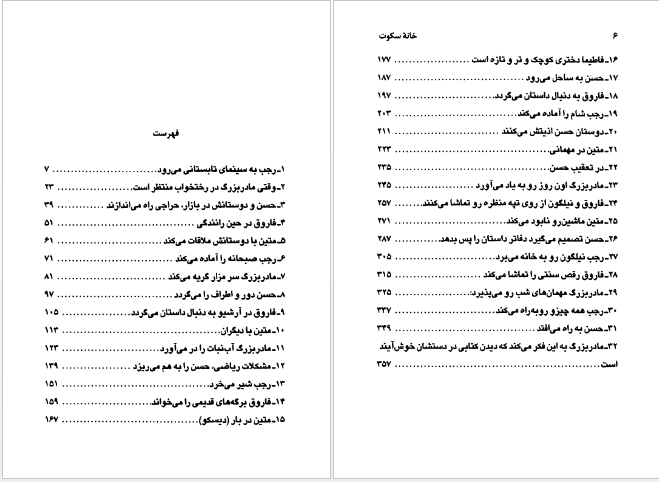 فهرست
۱ـ رجب به سینمای تابستانی می‌رود............................ ۷
۲ـ وقتی مادربزرگ در رختخواب منتظر است..................... ۲۳
۳ـ حسن و دوستانش در بازار، حراجی راه می‌اندازند ............ ۳۹
۴ـ فاروق در حین رانندگی ...................................... ۵۱
۵ـ متین با دوستانش ملاقات می‌کند ............................ ۶۱
۶ـ رجب صبحانه را آماده می‌کند ............................... ۷۱
۷ـ مادربزرگ سر مزار گریه می‌کند ............................. ۸۱
۸ـ حسن دور و اطراف را می‌گردد ............................... ۹۷
۹ـ فاروق در آرشیو به دنبال داستان می‌گردد................... ۱۰۵
۱۰ـ متین با دیگران............................................ ۱۱۳
۱۱ـ مادربزرگ آب‌نبات را در می‌آورد .......................... ۱۲۳
۱۲ـ مشکلات ریاضی، حسن را به هم می‌ریزد .................... ۱۳۹
۱۳ـ رجب شیر می‌خرد........................................... ۱۵۱
۱۴ـ فاروق برگه‌های قدیمی را می‌خواند......................... ۱۵۹
۱۵ـ متین در بار (دیسکو)...................................... ۱۶۷
۶ خانهٔ سکوت
۱۶ـ فاطیما دختری کوچک و تر و تازه است ..................... ۱۷۷
۱۷ـ حسن به ساحل می‌رود ...................................... ۱۸۷
۱۸ـ فاروق به دنبال داستان می‌گردد............................ ۱۹۷
۱۹ـ رجب شام را آماده می‌کند.................................. ۲۰۳
۲۰ـ دوستان حسن اذیتش می‌کنند ............................... ۲۱۱
۲۱ـ متین در مهمانی ........................................... ۲۲۳
۲۲ـ در تعقیب حسن............................................. ۲۳۵
۲۳ـ مادربزرگ اون روز رو به یاد می‌آورد ...................... ۲۴۵
۲۴ـ فاروق و نیلگون از روی تپه منظره رو تماشا می‌کنند........ ۲۵۷
۲۵ـ متین ماشین‌رو نابود می‌کند................................ ۲۷۱
۲۶ـ حسن تصمیم می‌گیرد دفاتر داستان را پس بدهد............. ۲۸۷
۲۷ـ رجب نیلگون رو به خانه می‌برد............................. ۳۰۵
۲۸ـ فاروق رقص سنتی را تماشا می‌کند ......................... ۳۱۵
۲۹ـ مادربزرگ مهمان‌های شب رو می‌پذیرد...................... ۳۲۵
۳۰ـ رجب همه چیزو روبه‌راه می‌کند............................. ۳۳۷
۳۱ـ حسن به راه می‌افتد ........................................ ۳۴۹
۳۲ـ مادربزرگ به این فکر می‌کند که دیدن کتابی در دستشان خوش‌آیند
است.............................................................. ۳۵۷